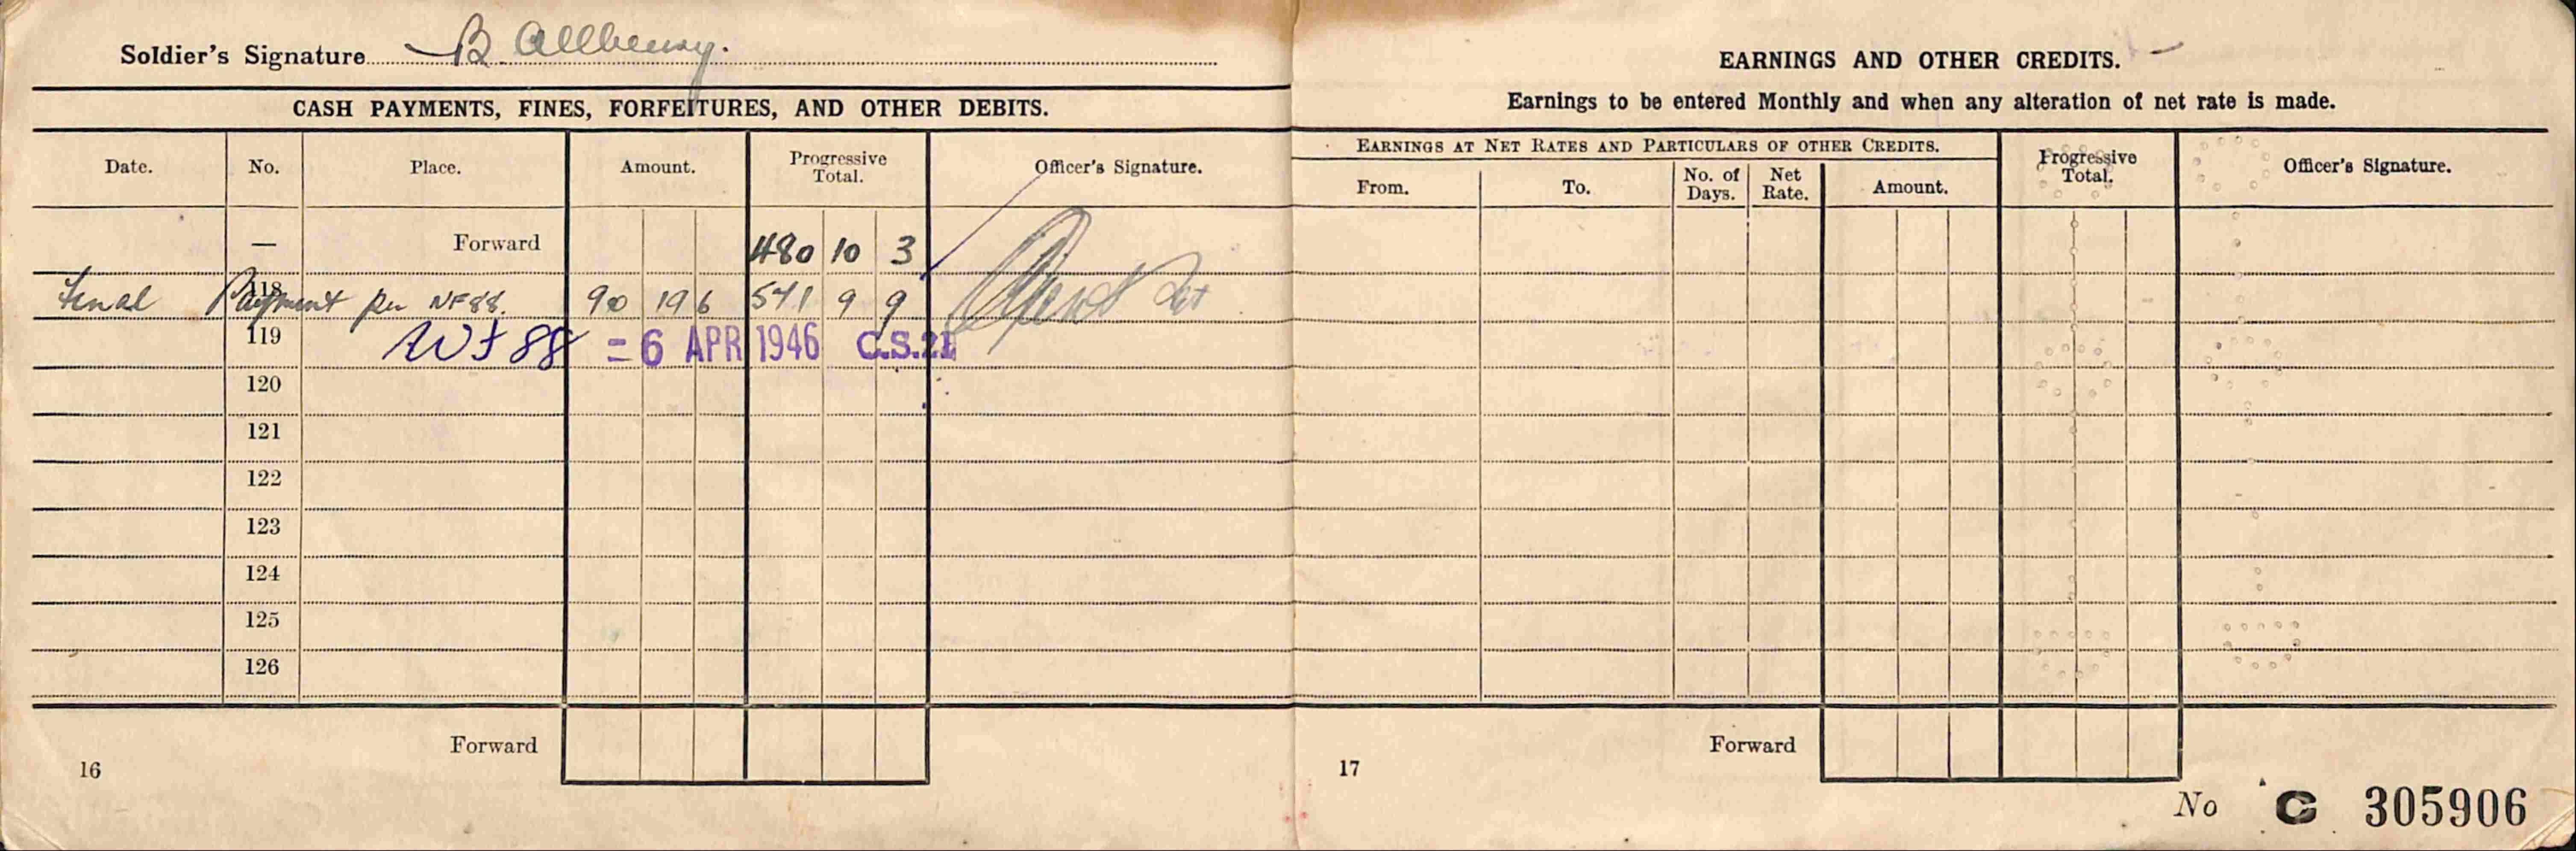 Soldier's Signature B Allbeury.
CASH PAYMENTS, FINES, FORFEITURES, AND OTHER DEBITS.
Date. No. Place. Amount. Progressive Total. Officer's Signature.
— Forward 480 10 3
118
Final Payment per NF88. 90 19 6 571 9 9 Lt
119 NF 88 = 6 APR 1946 C.S.21
120
121
122
123
124
125
126
Forward
16
EARNINGS AND OTHER CREDITS.
Earnings to be entered Monthly and when any alteration of net rate is made.
EARNINGS AT NET RATES AND PARTICULARS OF OTHER CREDITS.
From. To. No. of Days. Net Rate. Amount. Progressive Total. Officer's Signature.
Forward
17
No C 305906